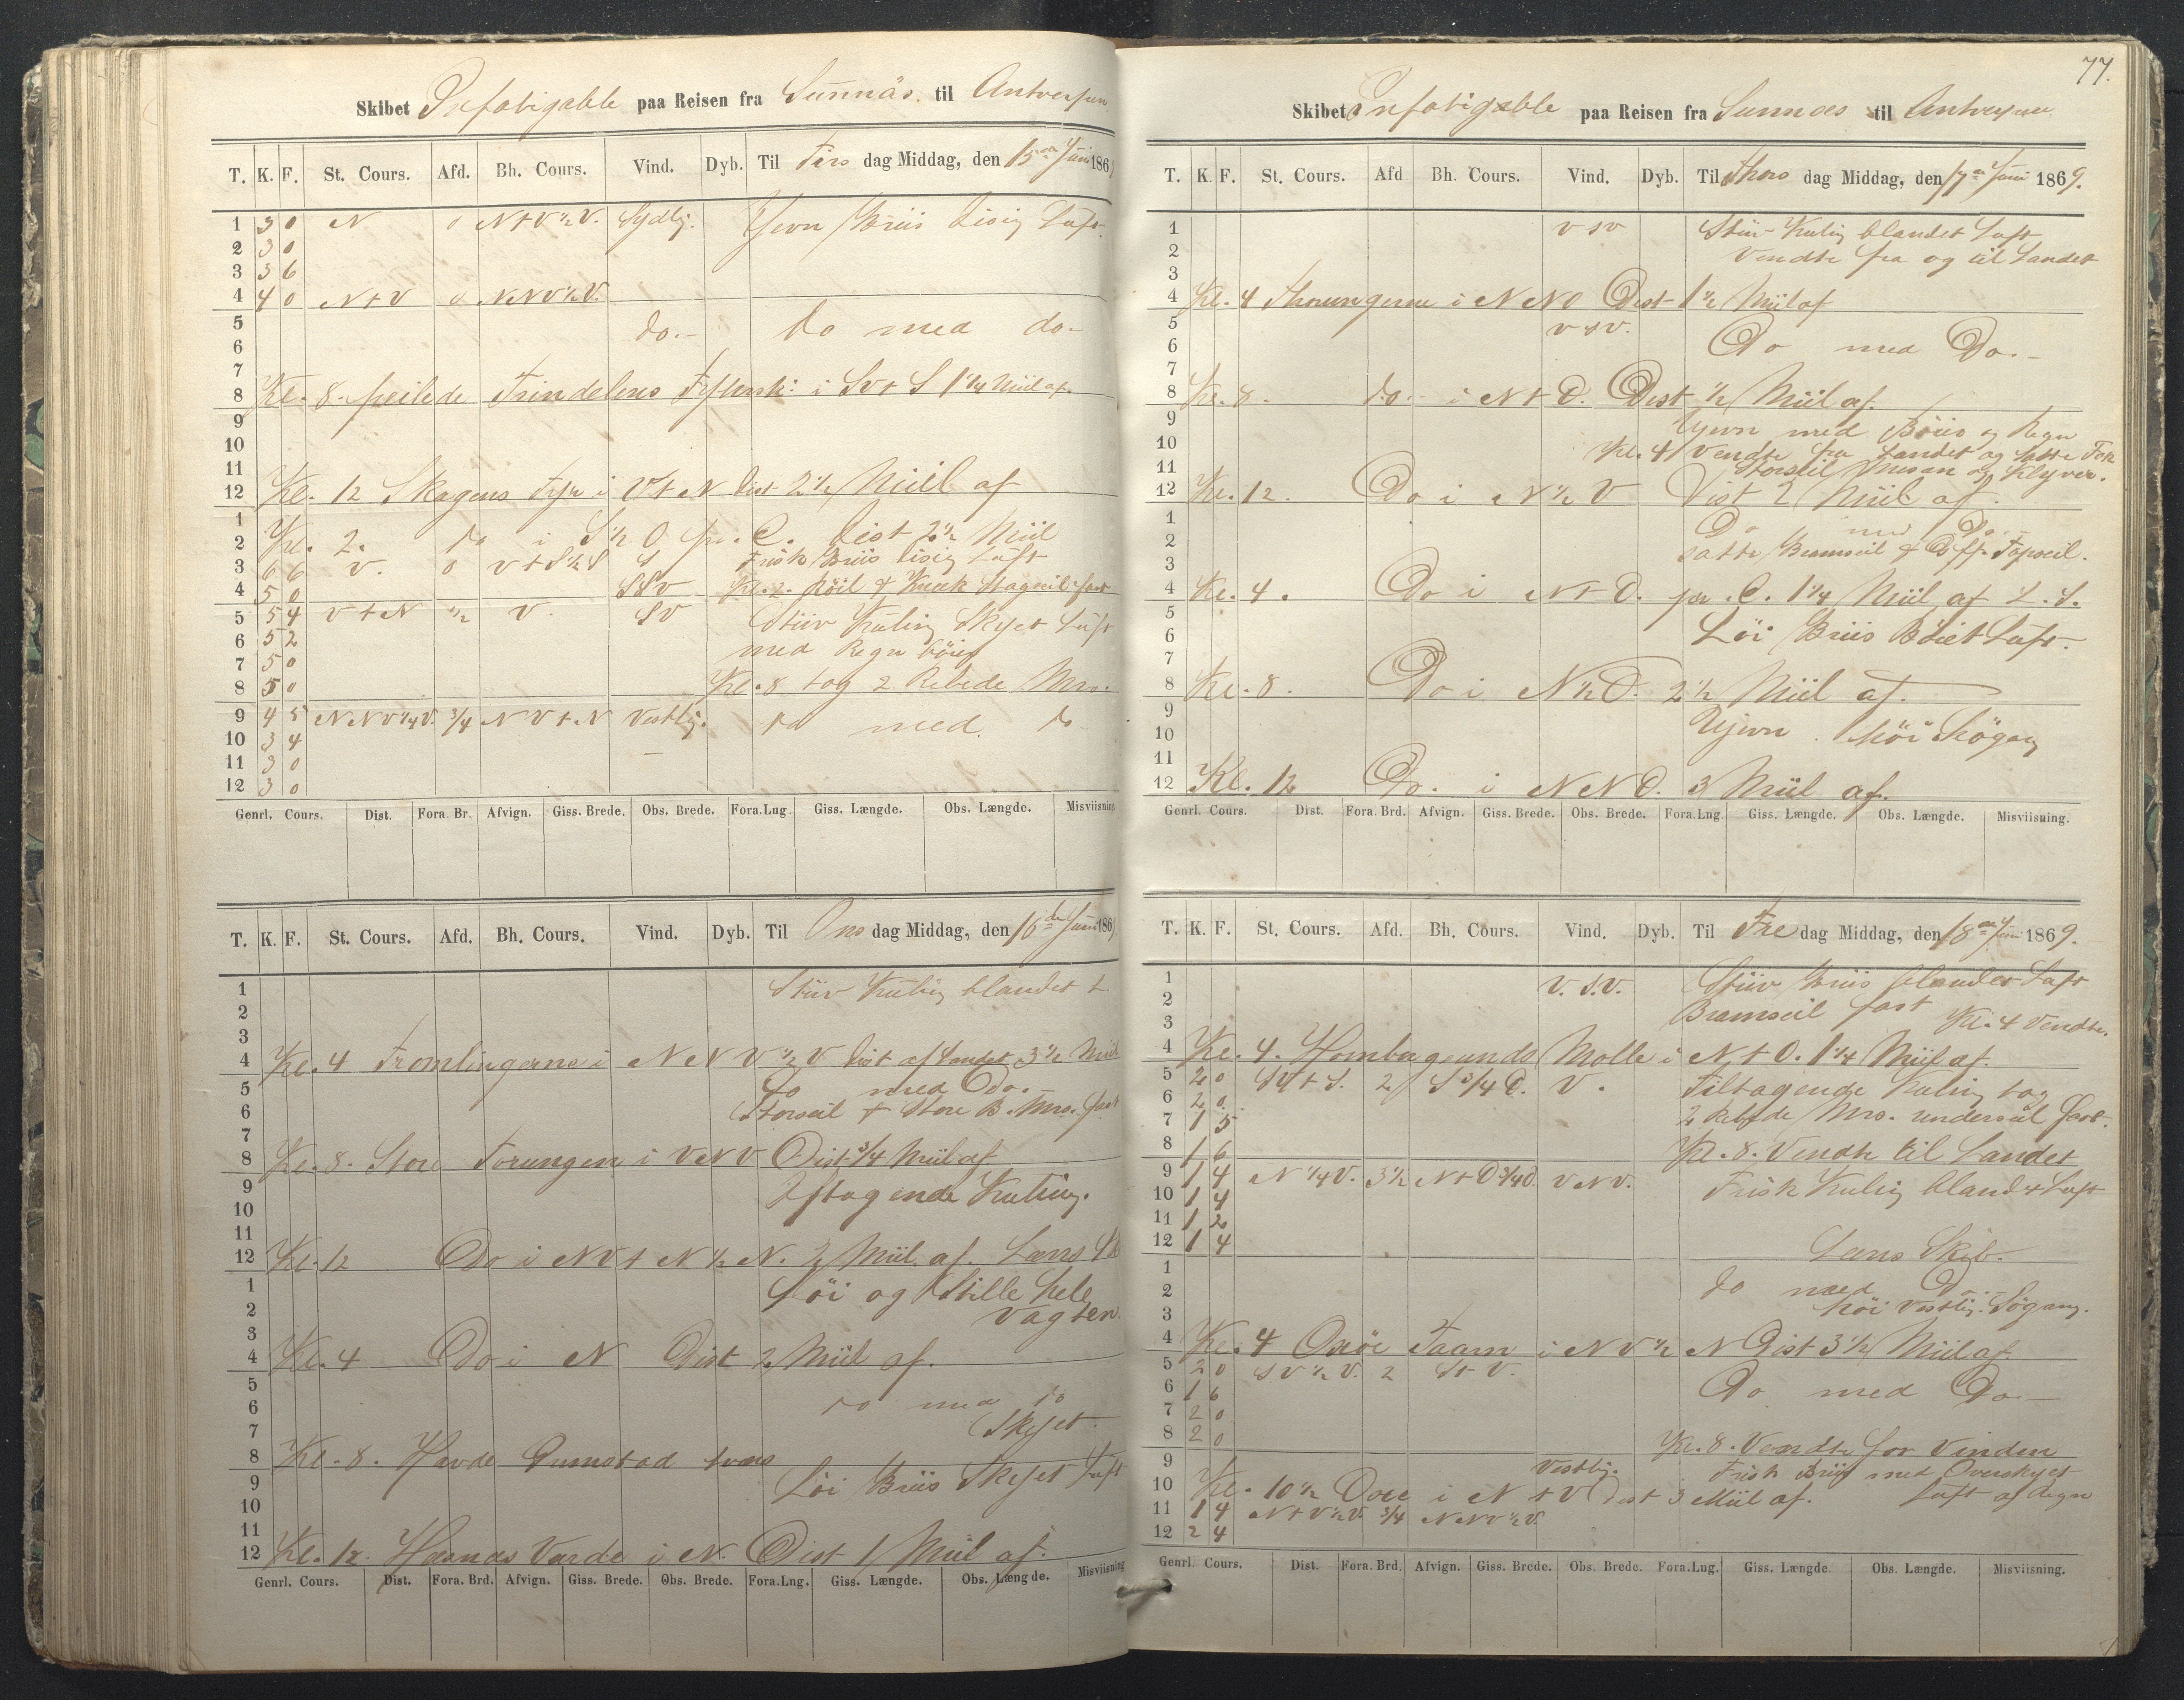 Skibet Infatigable paa Reisen fra Sunnäs. til Antverpen
T. K. F. St. Cours. Afd. Bh. Cours. Vind. Dyb. Til Tirs dag Middag, den 15de Juni 1869
1 3 0 N 0 N t V ½ V. Sydlig. Jevn Briis Disig Luft.
2 3 0
3 3 6
4 4 0 N t V 0 NNV ½ V.
5 do.- do med do-
6
7
8 Kl. 8. peilede Trindelens Fyrsk: i SV t S 1¼ Miil af.
9
10
11
12 Kl. 12 Skagens Fyr i V t N Dist 2½ Miil af
1
2 Kl. 2. do i S ½ O pr. C. Dist 2½ Miil
3 6 6 V. 0 V t S ½ S S Frisk Briis Disig Luft
4 5 0 SSV Kl. 2. Röil & Stagseil fast
5 5 4 V t N ½ V. SV Stiiv Kuling Skyet Luft
6 5 2 med Regn böier
7 5 0
8 5 0 Kl. 8 tog 2 Rebede Mrs.
9 4 5 NNV ¼ V. ¾ NV t N Vestlig. do med do
10 3 4
11 3 0
12 3 0
Genrl. Cours. Dist. Fora. Br. Afvign. Giss. Brede. Obs. Brede. Fora.Lng. Giss. Længde. Obs. Længde. Misviisning
T. K. F. St. Cours. Afd. Bh. Cours. Vind. Dyb. Til Ons dag Middag, den 16de Juni 1869
1 Stiiv Kuling blandet L
2
3
4 Kl. 4 Tromlingerne i NNV ½ V Dist af Landet 3½ Miil
5 do med Do.-
6 Storseil & Store B. Mrs. fast
7
8 Kl. 8. Store Torungen i VNV Dist ¾ Miil af
9 Aftagende Kuling.
10
11
12 Kl. 12 Do i NV t N ½ N. 2 Miil af. Læns Sk
1 Löi og Stille hele
2 Vagten.
3
4 Kl. 4 Do i N Dist 2 Miil af.
5
6 do med do
7 Skyet.
8 Kl. 8. Havde tvers
9 Löi Briis Skyet Luft
10
11
12 Kl. 12. Hæsnæs Varde i N. Dist 1 Miil af.
Genrl. Cours. Dist. Fora. Brd. Afvign. Giss. Brede. Obs. Brede. Fora.Lng. Giss. Længde. Obs. Længde. Misviisning
77.
Skibet Infatigable paa Reisen fra Sunnæs til Antverpen
T. K. F. St. Cours. Afd Bh. Cours. Vind. Dyb. Til Thors dag Middag, den 17de Juni 1869.
1 V SV Stiiv Kuling blandet Luft
2 Vendte fra og til Landet
3
4 Kl. 4 Thorungerne i NNO Dist 1½ Miil af
5 V SV.
6 Do med Do.-
7
8 Kl. 8. do.- i N t O. Dist ½ Miil af.
9 Ujevn med Böier og Regn
10 Kl. 4 Vendte fra Landet og satte Fok
11 Storseil Mesan og Klyver.
12 Kl. 12. Do i N ½ V Dist 2 Miil af.
1 Do med Do.-
2 satte Bramseil & Topseil.
3
4 Kl. 4. Do i N t O. pr. C. 1¼ Miil af L. S.
5
6 Löi Briis Böiet Luft.
7
8 Kl. 8. Do i N ½ O. 2½ Miil af.
9
10 Ujevn. höi Sögang
11
12 Kl. 12 Do. i NNO. 3 Miil af.
Genrl. Cours. Dist. Fora. Brd. Afvign. Giss. Brede. Obs. Brede. Fora.Lng Giss. Længde. Obs. Længde. Misviisning.
T. K. F. St. Cours. Afd. Bh. Cours. Vind. Dyb. Til Fre dag Middag, den 18de Juni 1869.
1 V. S.V. Stiiv Briis blandet Luft
2 Bramseil fast Kl. 4 Vendte.
3
4 Kl. 4. Homborgsunds Mølle i N t O. 1¼ Miil af.
5 2 0 SV t S. 2 S ¾ O. V. Tiltagende Kuling tog
6 2 0 2 Rebede Mrs. underseil fast.
7 1 5
8 1 6 Kl. 8. Vendte til Landet
9 1 4 N ¼ V. 3½ N t O ¾ O. V NV. Frisk Kuling bland t Luft
10 1 4
11 1 2
12 1 4 Læns Skib.
1
2 do med Do.-
3 höi vestlig. Sögang.
4 Kl. 4 Oxöe Taarn i NV ½ N Dist 3½ Miil af.
5 2 0 SV ½ V. 2 S t V.
6 1 6 Do med Do.-
7 2 0
8 2 0 Kl. 8. Vendte for Vinden
9 Vestlig. Frisk Briis med Overskyet
10 Kl. 10½ Oxöe i N t V Dist 3 Miil af. Luft af Regn
11 1 4 N t V ½ V. ¾ NNV ½ V.
12 2 4
Genrl. Cours. Dist. Fora. Brd. Afvign. Giss. Brede. Obs. Brede. Fora.Lng. Giss. Længde. Obs. Længde. Misviisning.